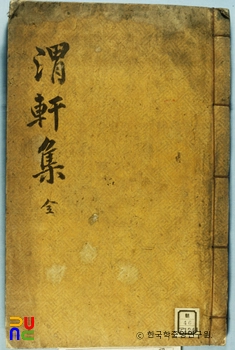 渭軒集
全
PUNE
© 한국학중앙연구원